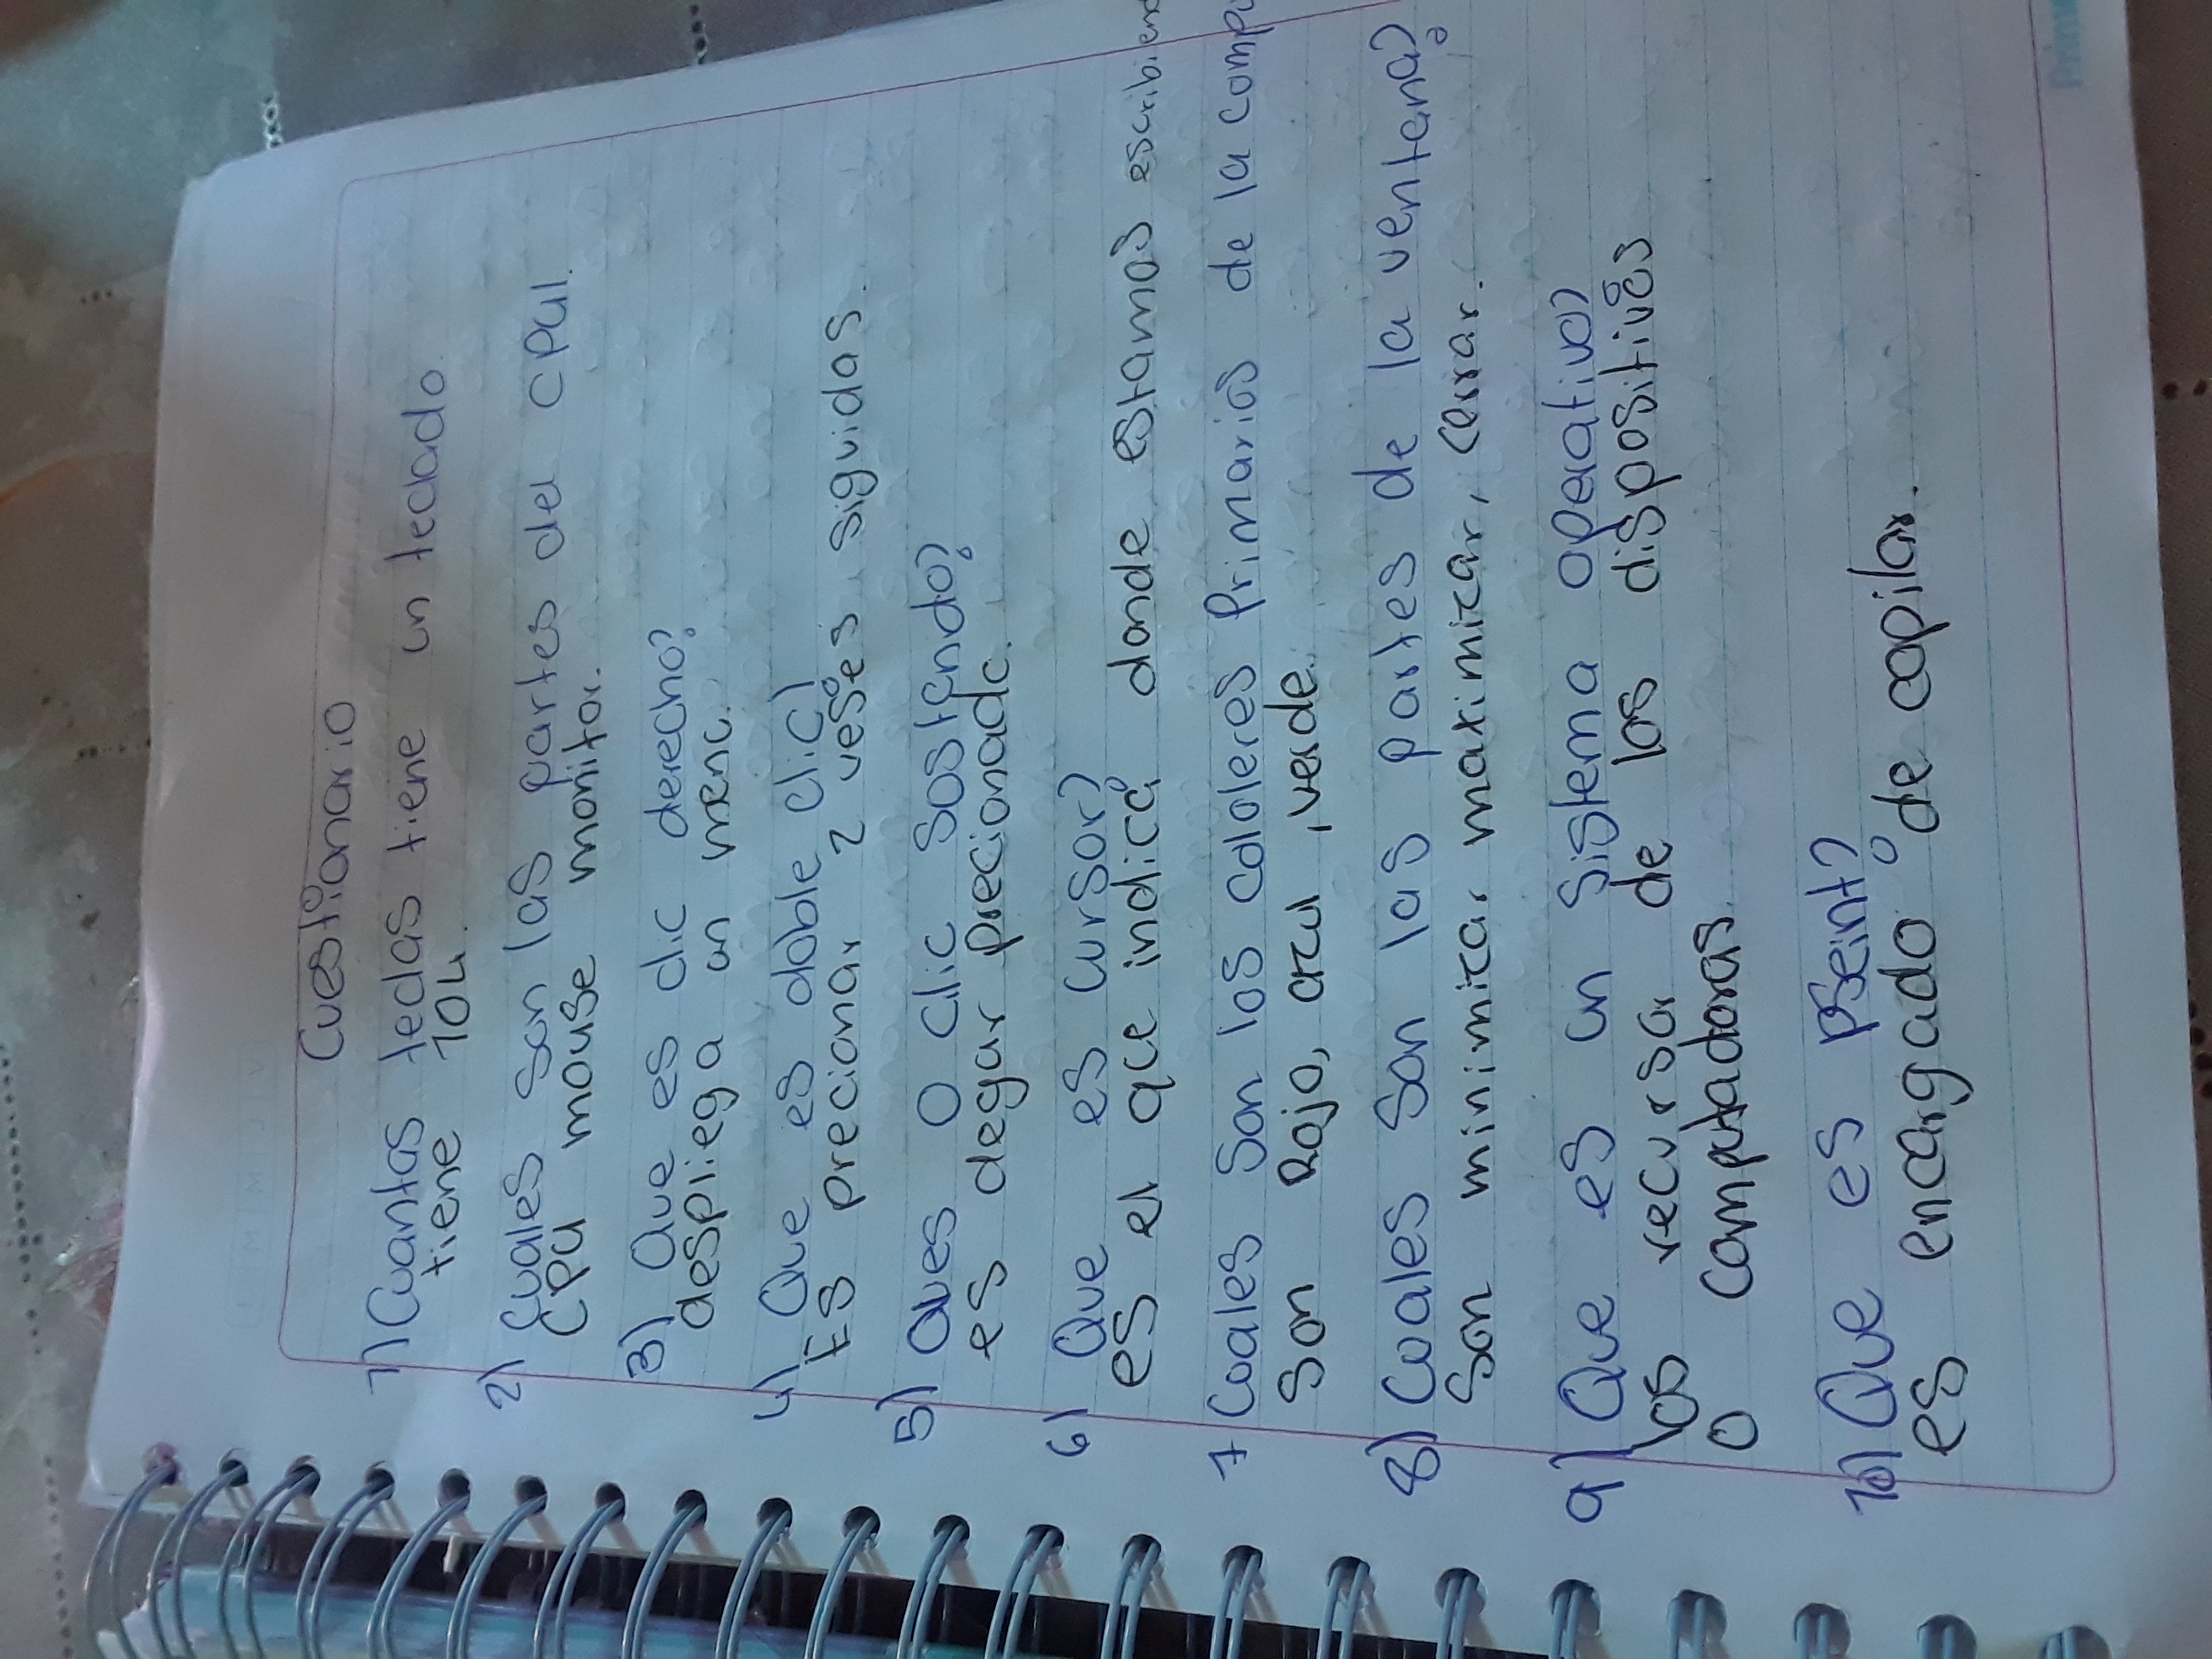 Cuestionario
1) Cuantas teclas tiene un teclado.
tiene 104.
2) Cuales son las partes del CPU.
CPU mouse monitor.
3) Que es clic derecho?
despliega un menu.
4) Que es doble clic)
Es precionar 2 veses siguidas.
5) Ques O clic sostendo?
es degar precionado.
6) Que es cursor?
es el que indica donde estamos escribiend
7 Cuales son los cololeres Primarios de la compu
Son Rojo, azul, verde.
8) Cuales Son las partes de la ventena?
Son minimizar maximizar, cerrar.
9) Que es un sistema operativo?
los recursor de los dispositivos
o computadoras.
10) Que es pseint?
es encargado de copilar.
Prim